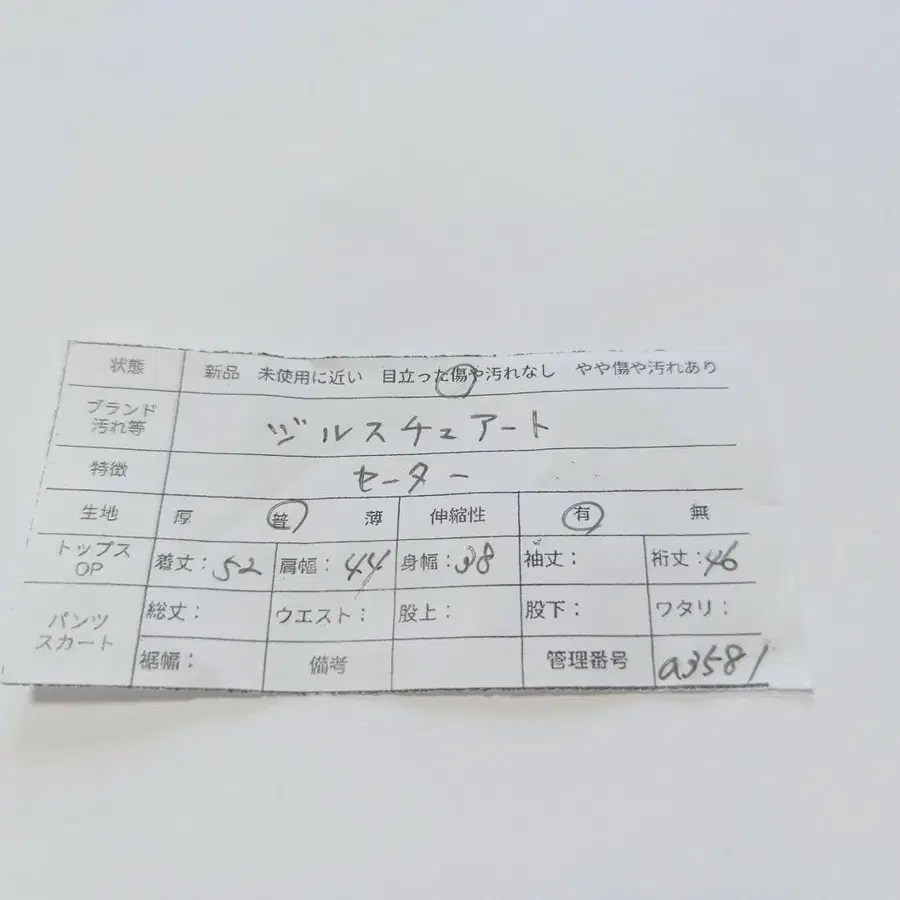 状態 新品 未使用に近い 目立った傷や汚れなし やや傷や汚れあり
ブランド 汚れ等 ジルスチュアート
特徴 セーター
生地 厚 普 薄 伸縮性 有 無
トップス OP 着丈：52 肩幅：44 身幅：38 袖丈： 裄丈：46
パンツ スカート 総丈： ウエスト： 股上： 股下： ワタリ：
裾幅： 備考 管理番号 a3581